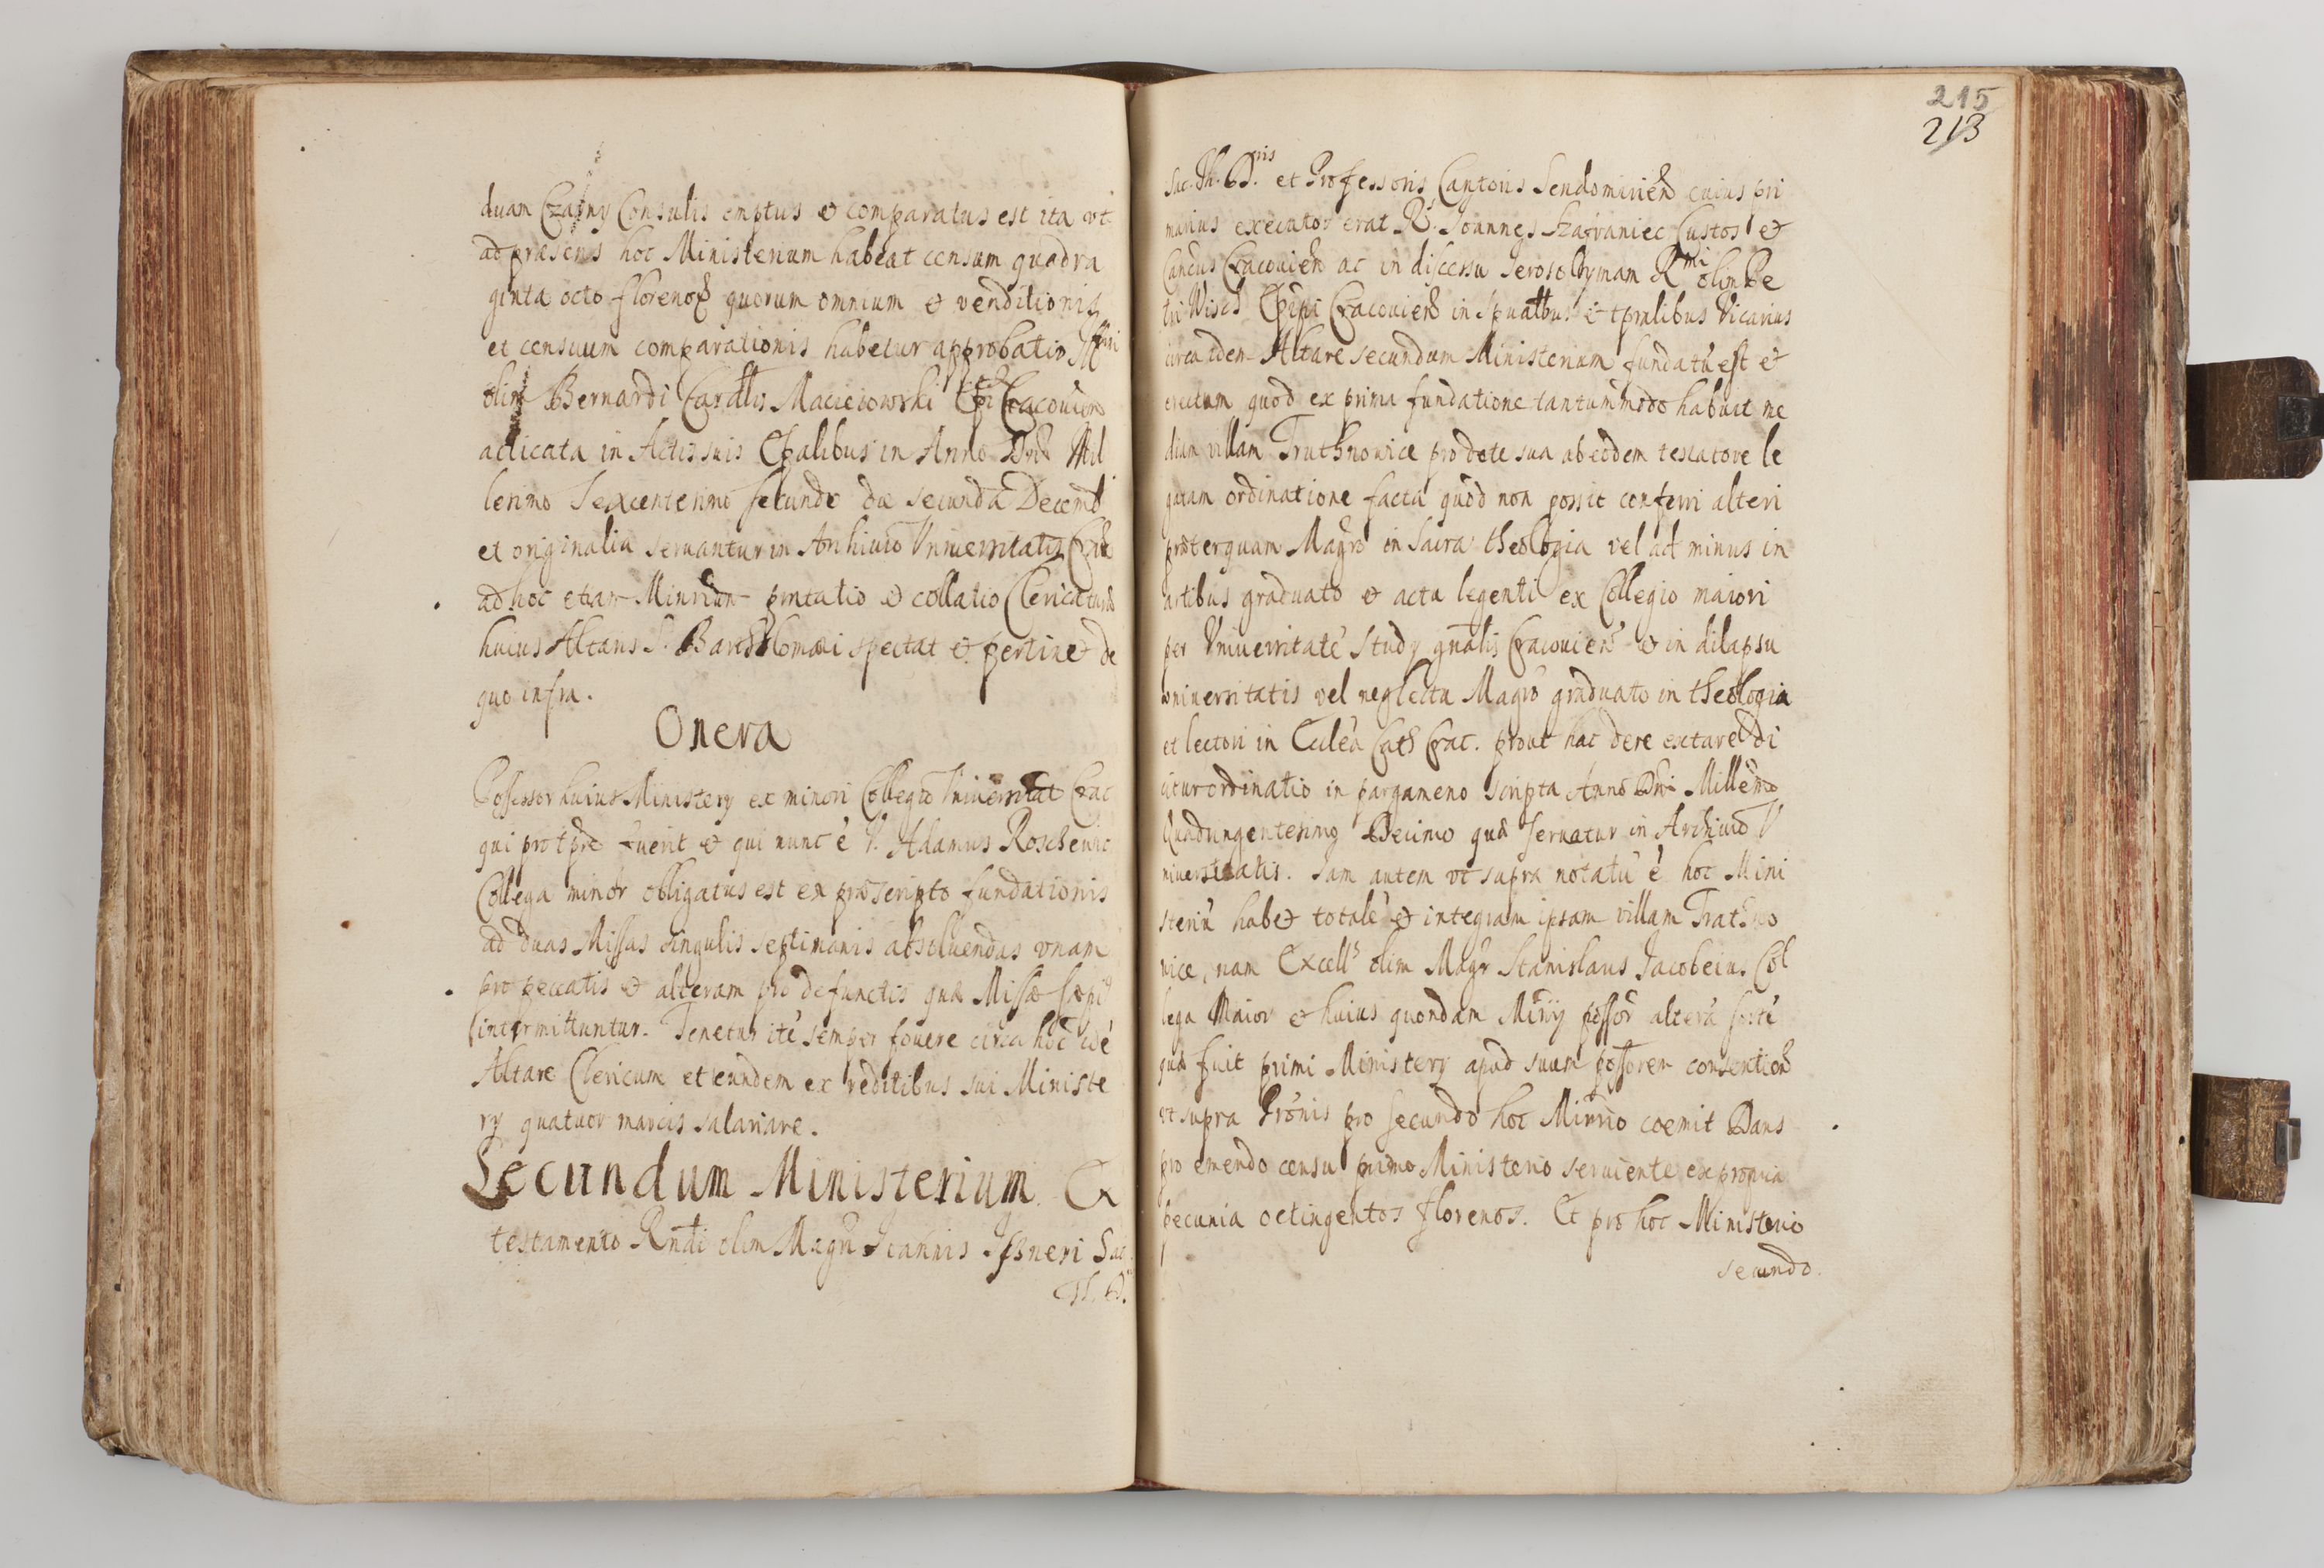 duam Czarny Consulis emptus et comparatus est ita vt
ad præsens hoc Ministerium habeat censum quadra
ginta octo florenor quorum omnium et venditionis
et censuum comparationis habetur approbatio Illmi
olim Bernardi Cardlis Macieiowski Epi Cracouien
acticata in Actis suis Epalibus in Anno Dni Mil
lesimo Sexcentesimo secundo die secunda Decemb
et originalia seruantur in Archiuio Vniuersitatis Crac
ad hoc etiam Minrium pntatio et collatio Clericatus
huius Altaris S. Bartholomæi spectat et pertinet de
quo infra.
Onera
Possessor huius Ministery ex minori Collegio Vniuersitat Crac
qui pro tpre fuerit et qui nunc é V. Adamus Roschewic
Collega minor obligatus est ex præscripto fundationis
ad duas Missas singulis septimanis absoluendas vnam
pro peccatis et alteram pro defunctis quæ Missæ sæpi9
intermittuntur. Tenetur ité semper fouere circa hoc idé
Altare Clericum et eundem ex reditibus sui Ministe
ry quatuor marcis salariare.
Secundum Ministerium. Ex
testamento Rndi olim Magri Ioannis Isneri Sac.
Th. D.
Sac. Th. D.ris et Professoris Cantoris Sendomirien cuius pri
marius executor erat R. Ioannes Szafraniec Custos et
Cancus Cracouien ac in discessu Ierosolymam Rmi olim Pe
tri Wisch Epi Cracouien in spualbus et tpralibus Vicarius
circa idem Altare secundum Ministerium fundatú est et
erectum quod ex prima fundatione tantummodo habuit me
diam villam Truthnowice pro dote sua ab eodem testatore le
gatam ordinatione facta quòd non possit conferri alteri
præterquam Magro in Sacra theologia vel ad minus in
artibus graduato et actu legenti ex Collegio maiori
per Vniuersitaté Study gnalis Cracouien et in dilapsu
vniuersitatis vel neglectu Magro graduato in theologia
et lectori in Eccléa Cath Crac. prout hac de re extare di
citur ordinatio in pargameno scripta Anno Dni Millemo
Quadringentesimo Decimo quæ seruatur in Archiuio V
niuersitatis. Iam autem vt supra notatú é hoc Mini
steriú habet totalé et integram ipsam villam Trathno
wice, nam Excells olim Magr Stanislaus Iacobeius Col
lega Maior et huius quondam Minry possor alterá sorté
quæ fuit primi Ministery apud suum possorem consentien
vt supra Pronis pro secundo hoc Minrio coemit Dans
pro emendo censu primo Ministerio seruiente ex propria
pecunia octingentos florenos. Et pro hoc Ministerio
secundo.
215
213